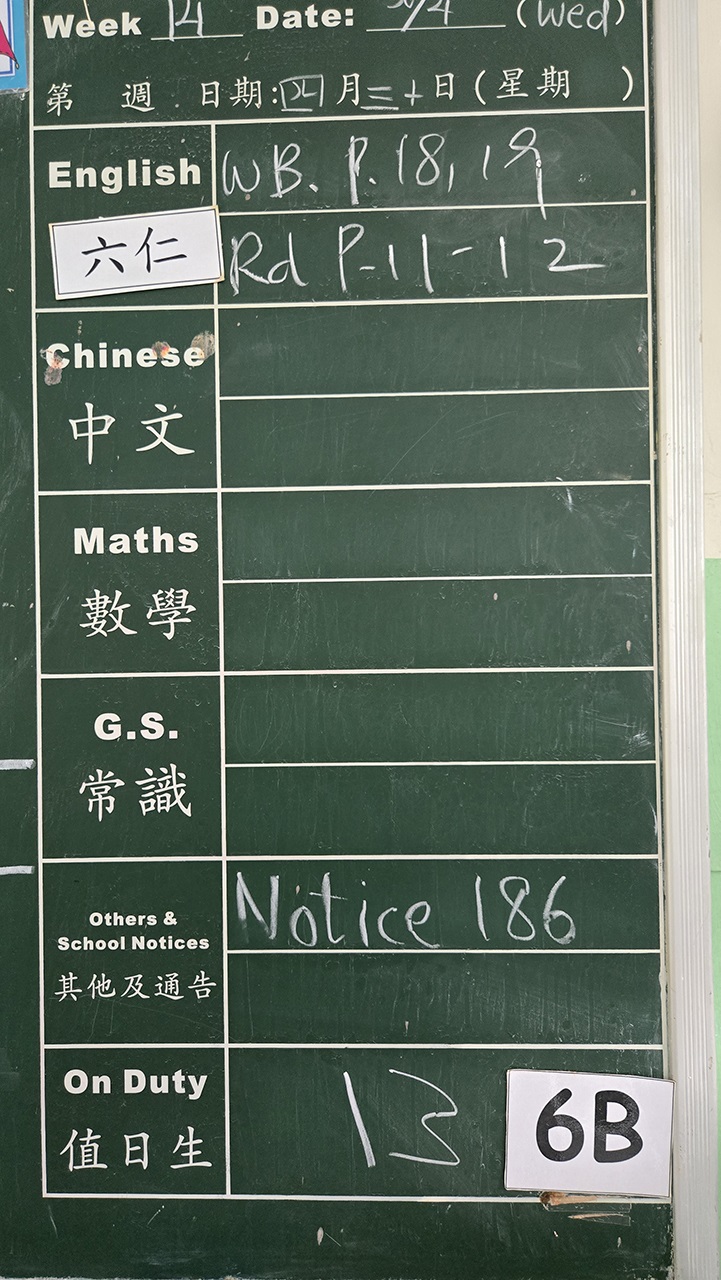 Week 14 Date: 30/4 (Wed)
第 週 日期:四月三十日(星期 )
English WB. P. 18, 19
六仁 Rd P.11-12
Chinese
中文
Maths
數學
G.S.
常識
Others &
School Notices
其他及通告
Notice 186
On Duty
值日生
13
6B